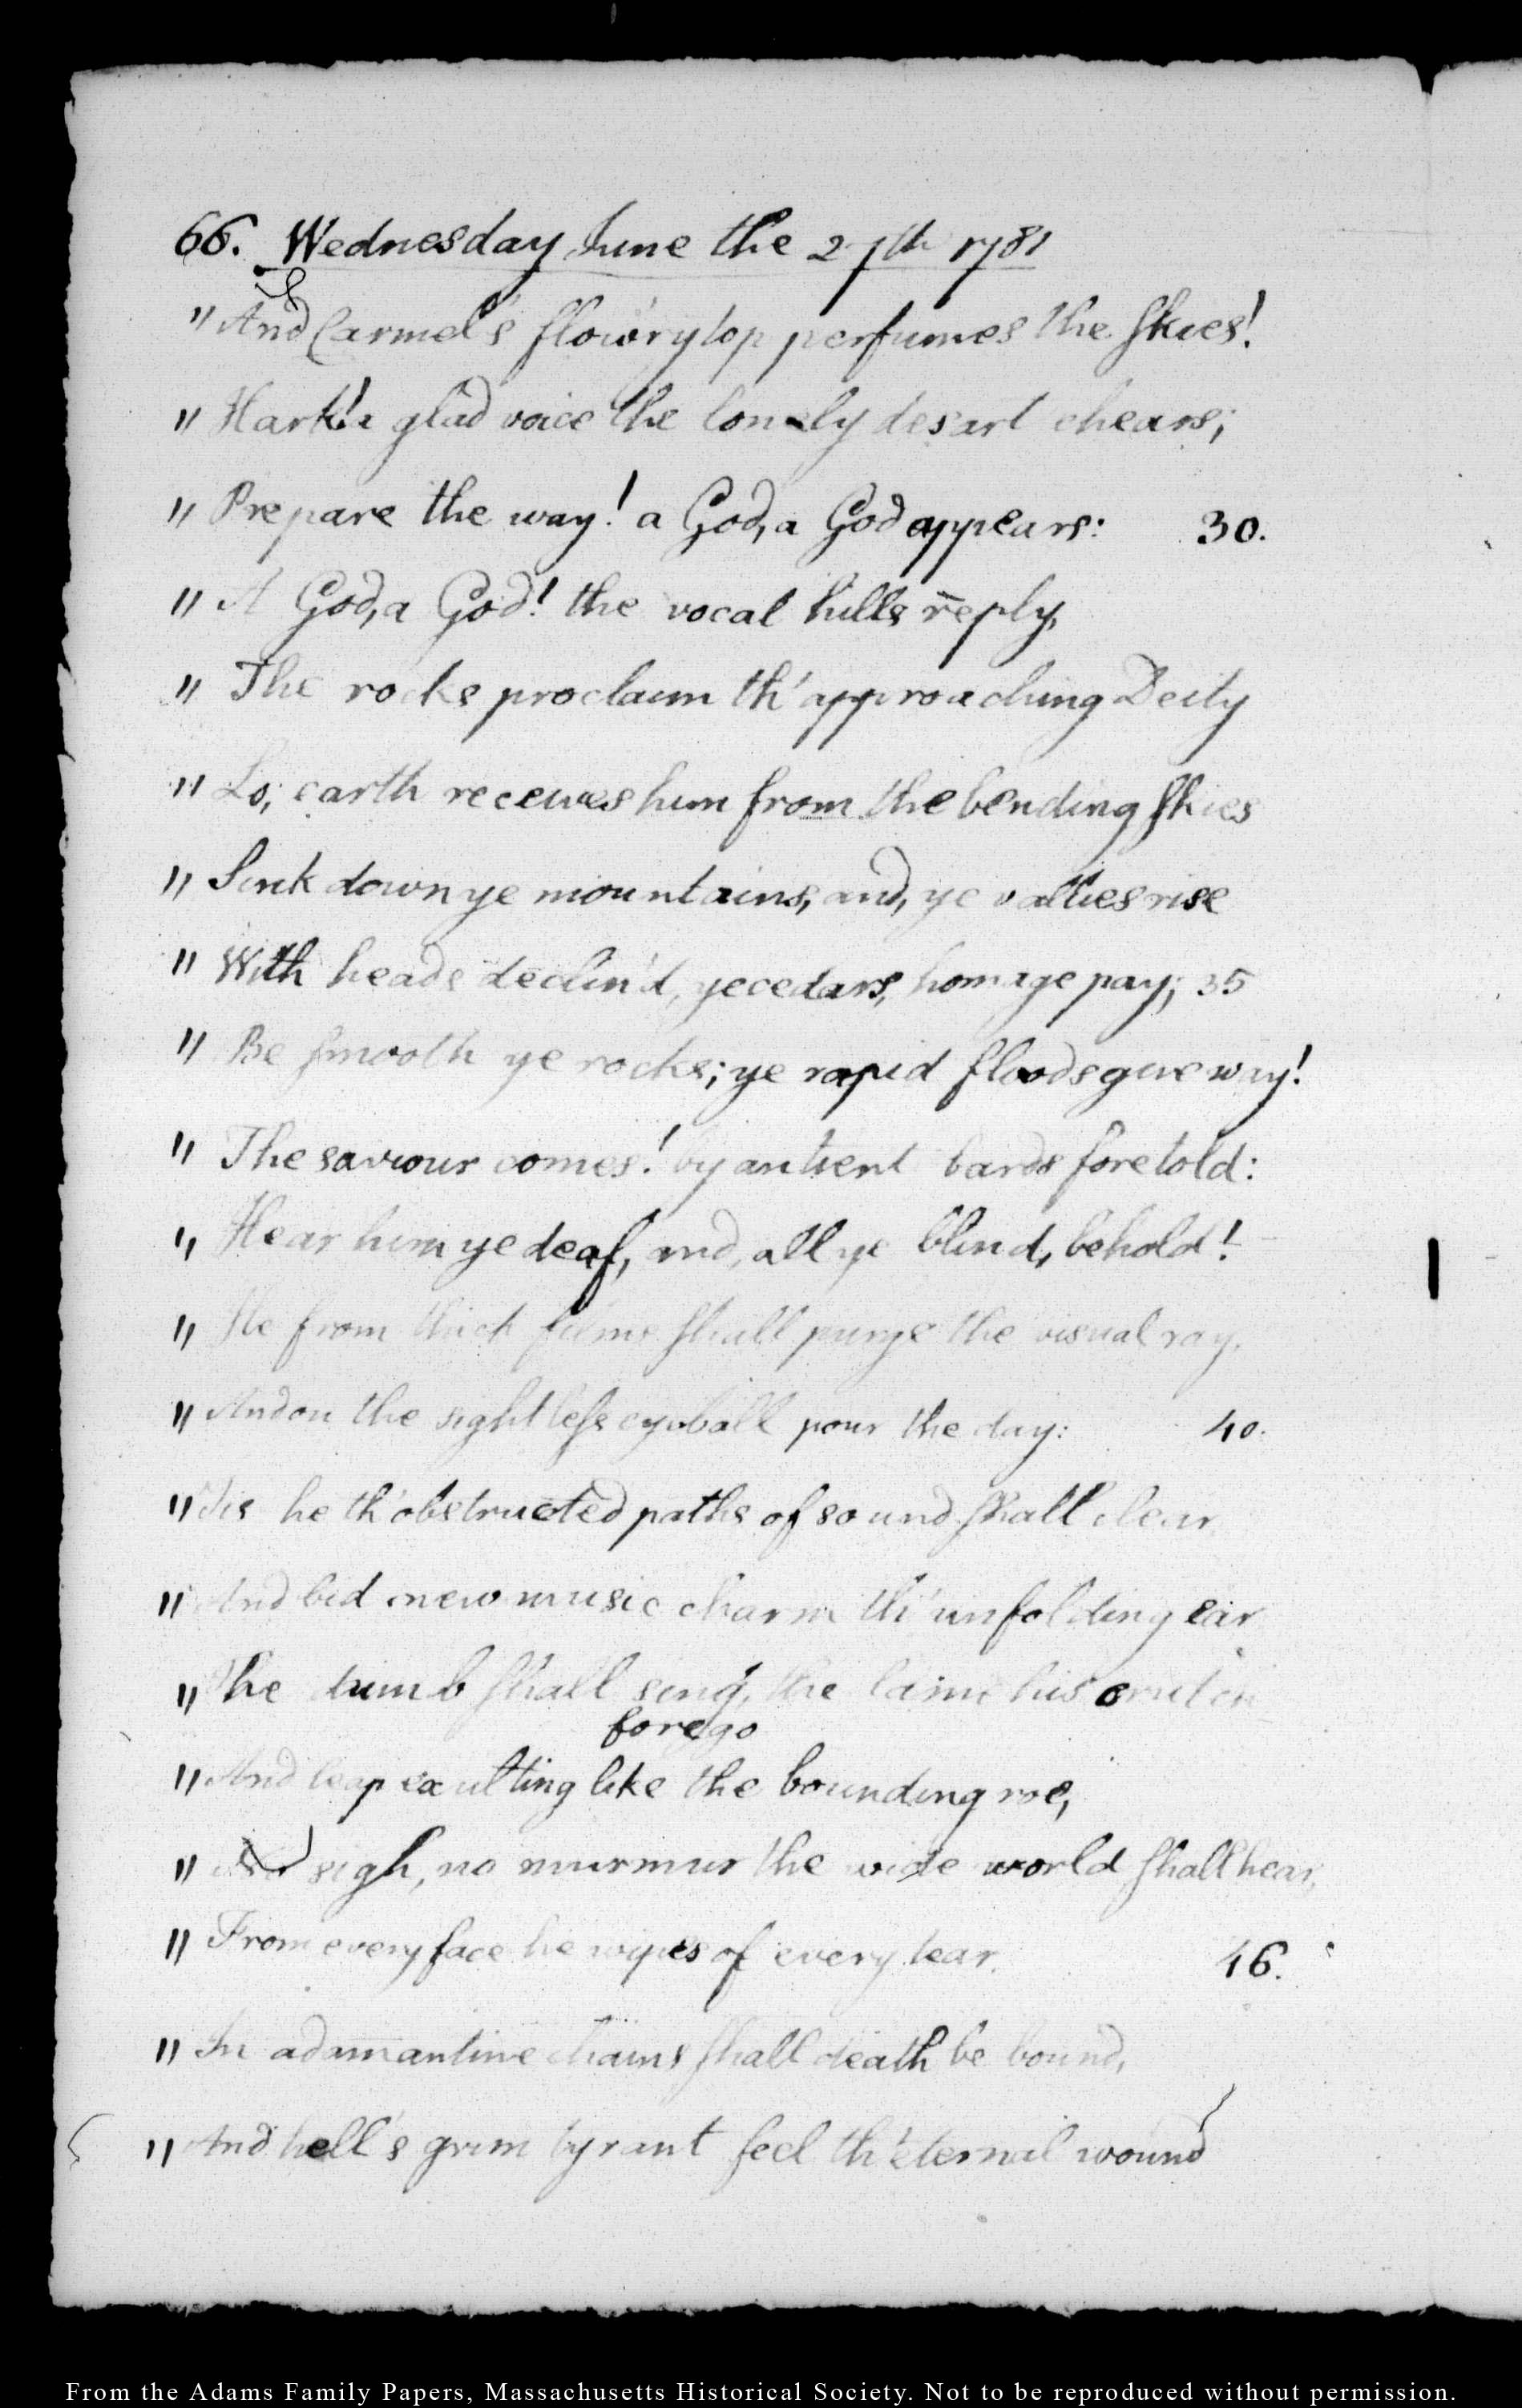 66. Wednesday June the 27th 1781
" And Carmel's flow'ry top perfumes the skies!
" Hark! a glad voice the lonely desart chears;
" Prepare the way! a God, a God appears: 30.
" A God, a God! the vocal hills reply,
" The rocks proclaim th' approaching Deity
" Lo; earth receives him from the bending skies
" Sink down ye mountains, and, ye vallies rise
" With heads declin'd, ye cedars, homage pay; 35
" Be smooth ye rocks; ye rapid floods give way!
" The saviour comes! by antient bards foretold:
" Hear him ye deaf, and, all ye blind, behold!
" He from thick films shall purge the visual ray,
" And on the sightless eyeball pour the day: 40.
" Tis he th' obstructed paths of sound shall clear
" And bid new music charm th' unfolding ear
" The dumb shall sing, the lame his crutch
forego
" And leap exulting like the bounding roe,
" No sigh, no murmur the wide world shall hear,
" From every face he wipes of every tear. 46.
" In adamantine chains shall death be bound,
" And hell's grim tyrant feel th' eternal wound
From the Adams Family Papers, Massachusetts Historical Society. Not to be reproduced without permission.